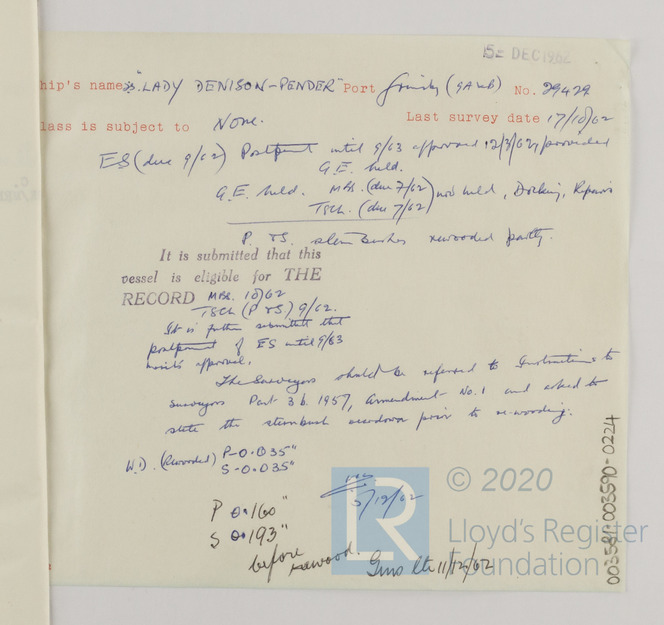 15 DEC 1962
hip's name "LADY DENISON-PENDER" Port Grimsby (9A Wb) No. 29429
lass is subject to None. Last survey date 17/10/62
ES (due 9/62) Postponement until 9/63 approved 12/3/62, provided
G.E. held.
G.E. held. MBS. (due 7/62) now held, Docking, Repairs
TSCh. (due 7/62)
P. & S. stern bushes rewooded partly.
It is submitted that this
vessel is eligible for THE
RECORD MBS. 10/62
TSCh (P & S) 9/62.
It is further submitted that
postponement of ES until 9/63
merits approval.
The Surveyors should be referred to Instructions to
Surveyors Part 3 b. 1957, Amendment No. 1 and asked to
state the sternbush weardown prior to re-wooding.
W.D. (Rewooded) P-0.035"
S-0.035"
5/12/62
P 0.160"
S 0.193"
before rewood.
Gms ltr 11/12/62
© 2020
LR
Lloyd's Register
Foundation
003581-003590-0224